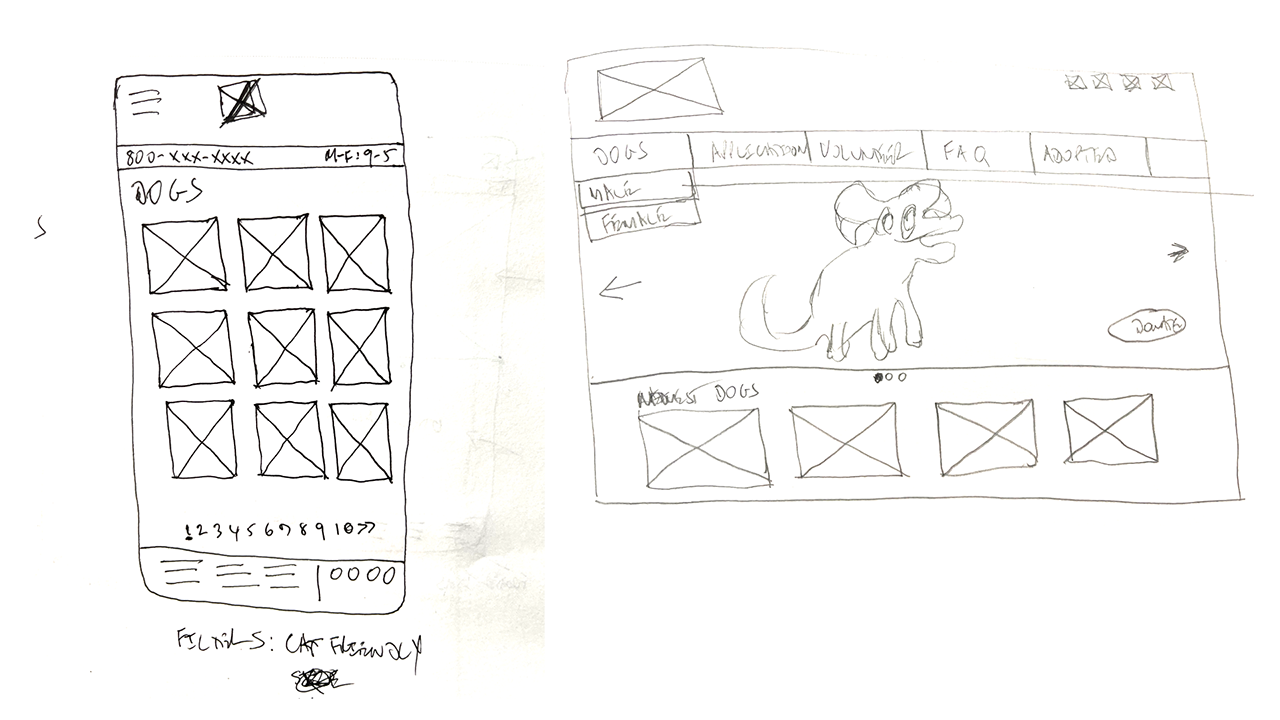 800-XXX-XXXX M-F:9-5
DOGS
1 2 3 4 5 6 7 8 9 10 >>
FILTERS: CAT FRIENDLY
S
DOGS APPLICATION VOLUNTEER FAQ ADOPTED
MALE
FEMALE
DONATE
NEWEST DOGS